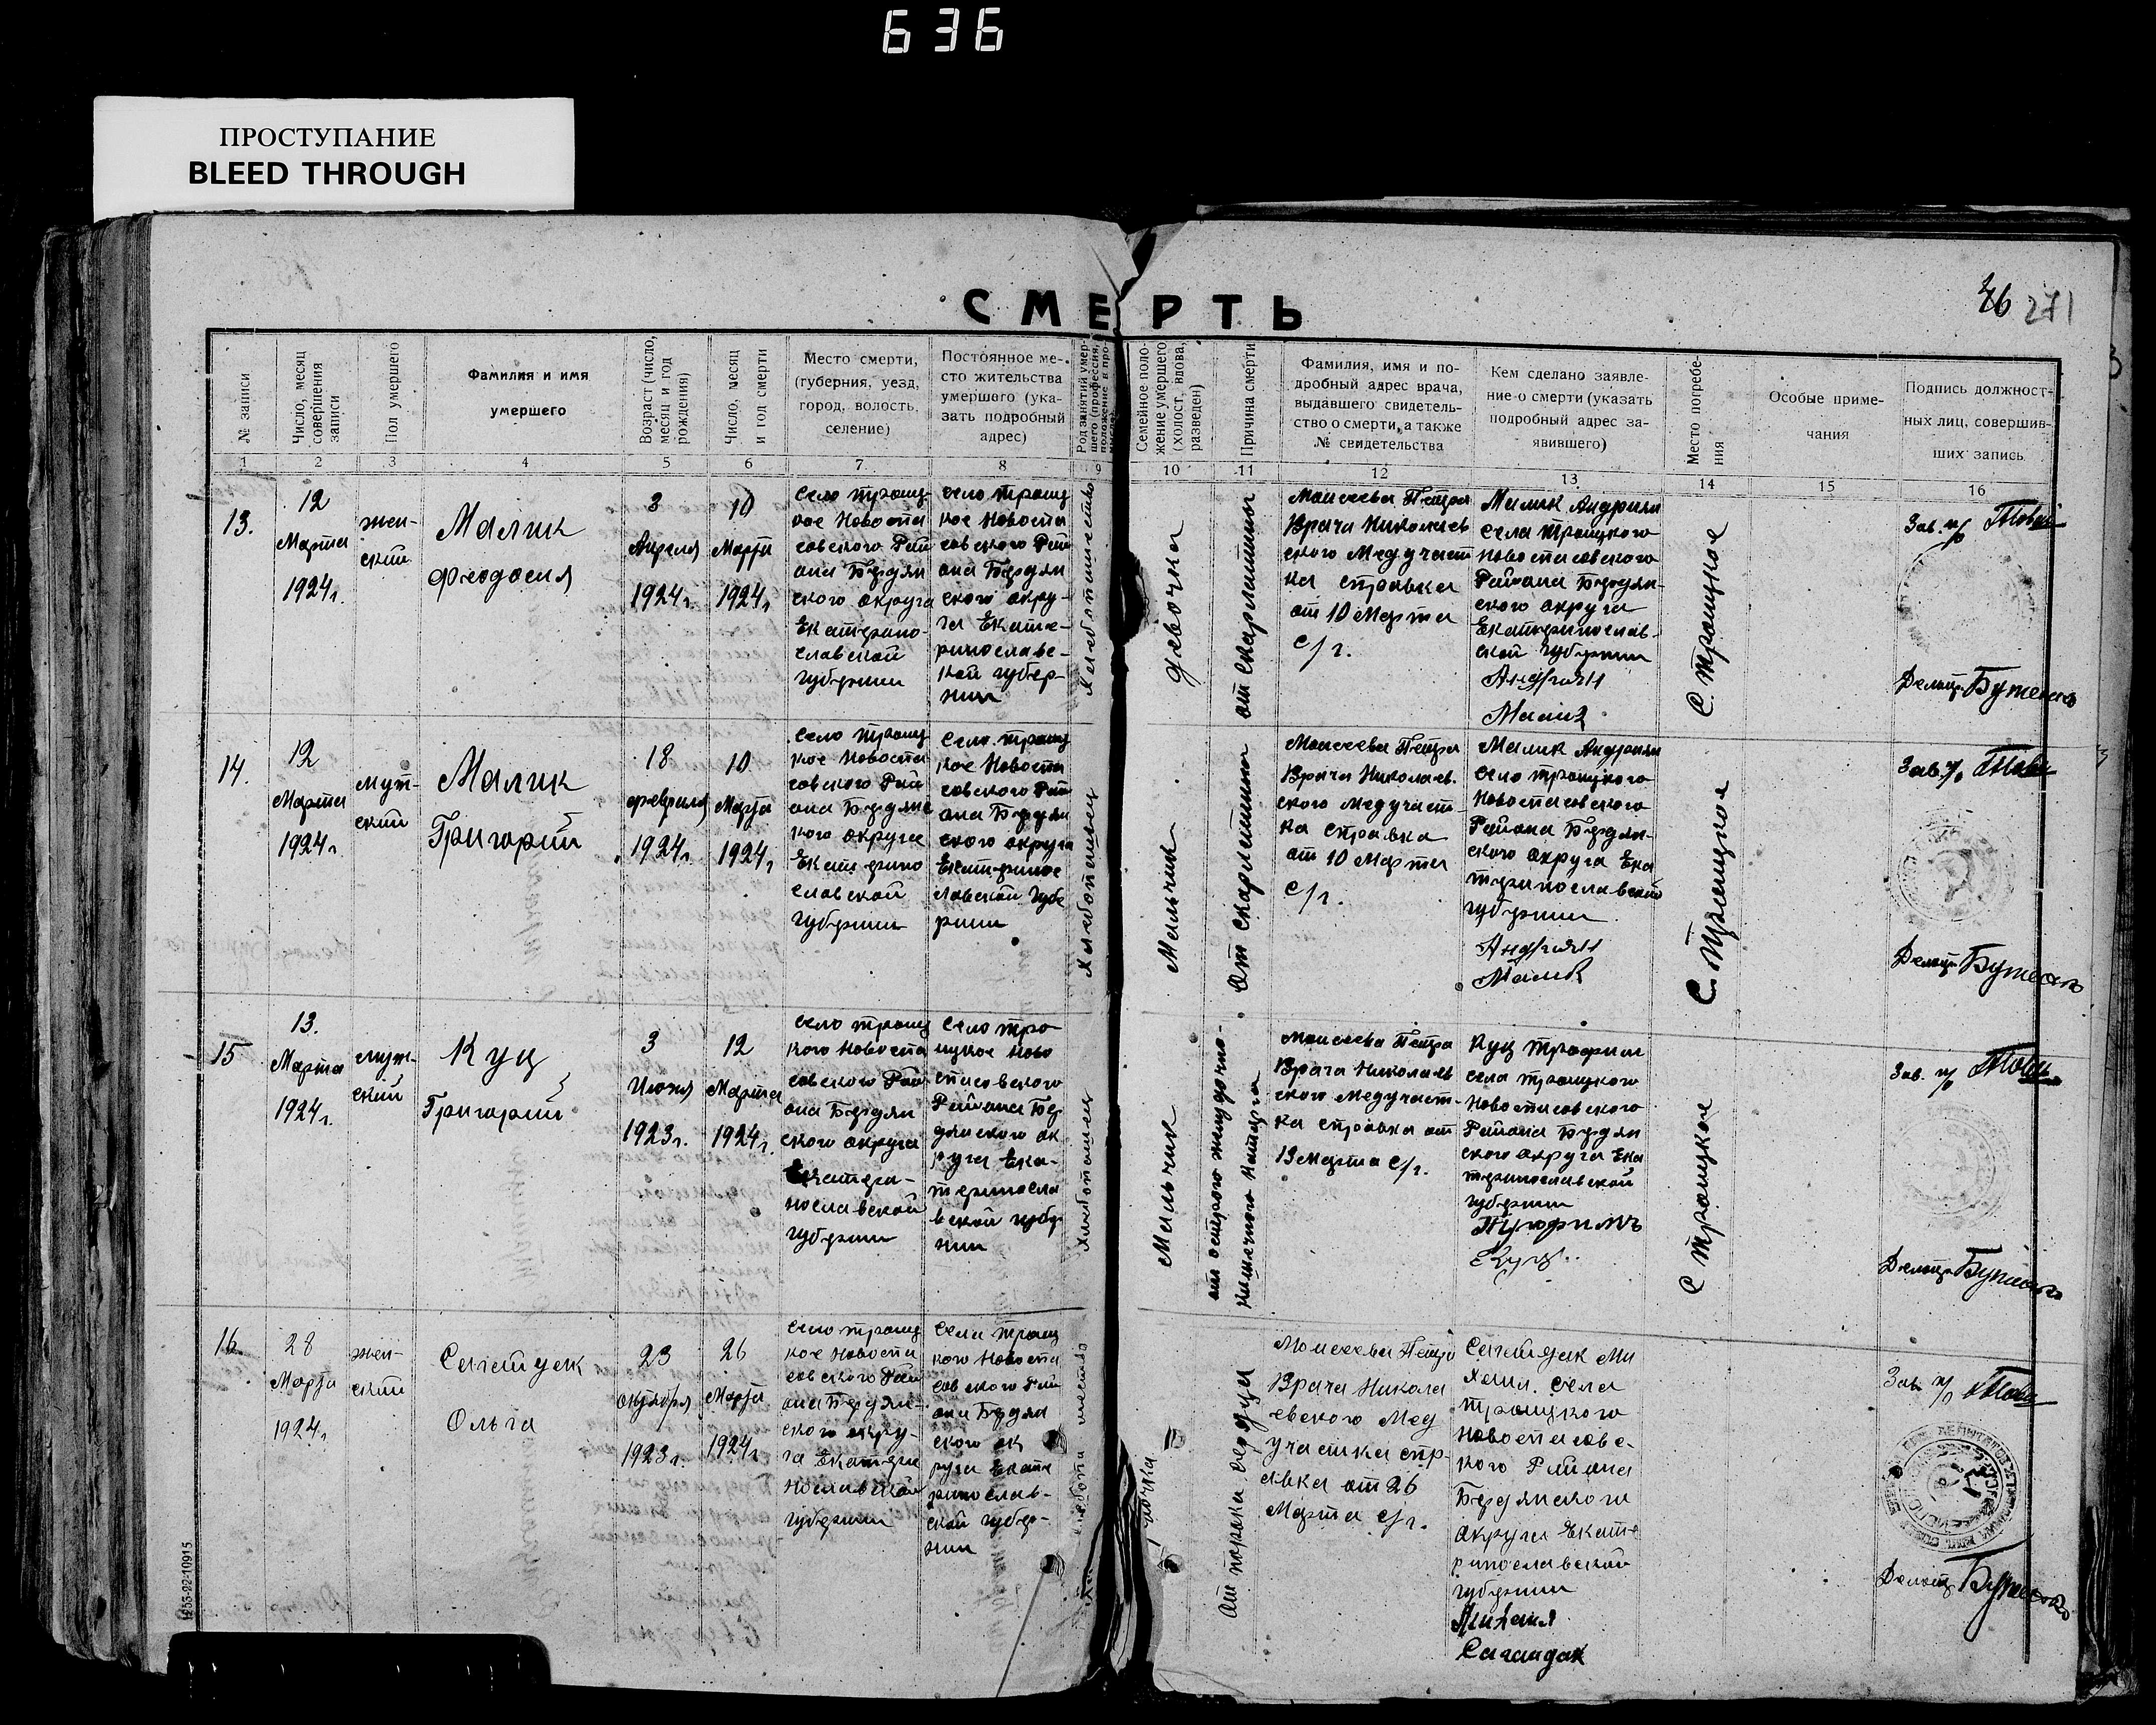 636
ПРОСТУПАНИЕ
BLEED THROUGH
46 271
СМЕРТЬ
№ записи
Число, месяц совершения записи
Пол умершего
Фамилия и имя
умершего
Возраст (число, месяц и год рождения)
Число, месяц и год смерти
Место смерти,
(губерния, уезд,
город, волость,
селение)
Постоянное ме-
сто жительства
умершего (ука-
зать подробный
адрес)
Семейное поло-
жение умершего
(холост, вдова,
разведен)
Причина смерти
Фамилия, имя и по-
дробный адрес врача,
выдавшего свидетель-
ство о смерти, а также
№ свидетельства
Кем сделано заявле-
ние о смерти (указать
подробный адрес за-
явившего)
Место погребе-
ния
Особые приме-
чания
Подпись должност-
ных лиц, совершив-
ших запись
1 2 3 4 5 6 7 8 9 10 11 12 13 14 15 16
13.
12
Марта
1924г.
жен-
ский
Малик
Феодосия
3
Апреля
1924г.
10
Марта
1924г
село Троиц
кое Новоспа
совского Рай
она Бердян
ского округа
Екатерино-
славской
губернии
село Троиц
кое Новоспа
совского Рай
она Бердян
ского окру-
га Екате-
ринославс-
кой губер-
нии
девочка
от скарлатины
Моисеева Петра
Врача Николаев
ского Медучаст
ка справка
от 10 Марта
с/г.
Малик Андриян
села Троицкого
Новоспасовского
Района Бердян-
ского округа
Екатеринослав-
ской губернии
Андриян
Малик
С. Троицкое
Зав. п/о
Делопр. Бутенко
14.
12
Марта
1924г
муж-
ский
Малик
Григорий
18
февраля
1924г.
10
Марта
1924г
село Троиц
кое Новоспа
совского Рай
она Бердянс
кого округа
Екатерино
славской
губернии
село Троиц
кое Новоспа
совского Рай
она Бердян
ского округа
Екатеринос
лавской губе
рнии
Хлебопашец
Мальчик
от скарлатины
Моисеева Петра
Врача Николаев.
ского Медучаст-
ка справка
от 10 Марта
с/г.
Малик Андриян
село Троицкого
Новоспасовского
Района Бердян-
ского округа Ека
теринославской
губернии
Андриян
Малик
С. Троицкое
Зав. п/о
Делопр Бутенко
15
13.
Марта
1924г.
муж-
ский
Куц
Григорий
3
Июня
1923г.
12
Марта
1924г.
село Троиц
кого Новоспа
совского Рай
она Бердян
ского округа
Екатери-
нославской
губернии
Село Тро
ицкое Ново
спасовского
Района Бер
дянского ок
руга Ека-
териносла
вской губер
нии
Хлебопашец
Мальчик
от острого желудочно-
кишечного катарра
Моисеева Петра
Врача Николаев
ского Медучаст-
ка справка от
13 Марта с/г.
Куц Трофим
села Троицкого
Новоспасовского
Района Бердян
ского округа Ека
теринославской
губернии
Трофимъ
Куц.
С Троицкое
Зав. п/о
Делопр Бутенко
16.
28
Марта
1924г
жен-
ский
Сагайдак
Ольга
23
октября
1923г.
26
Марта
1924г
село Троиц
кое Новоспа
совского Рай
она Бердян-
ского окру-
га Екатери
нославской
губернии
Села Троиц
кого Новоспа
совского Рай
она Бердян
ского ок
руга Екате
ринослав-
ской губер-
нии
от порока сердца
Моисеева Петра
Врача Никола
евского Мед
участка спр-
авка от 26
Марта с/г.
Сагайдак Ми
хаил. села
Троицкого
Новоспасовс-
кого Района
Бердянского
округа Екате
ринославской
губернии
Михаил
Сагайдак
Зав п/о
Делопр Бутенко
1253-22-10915